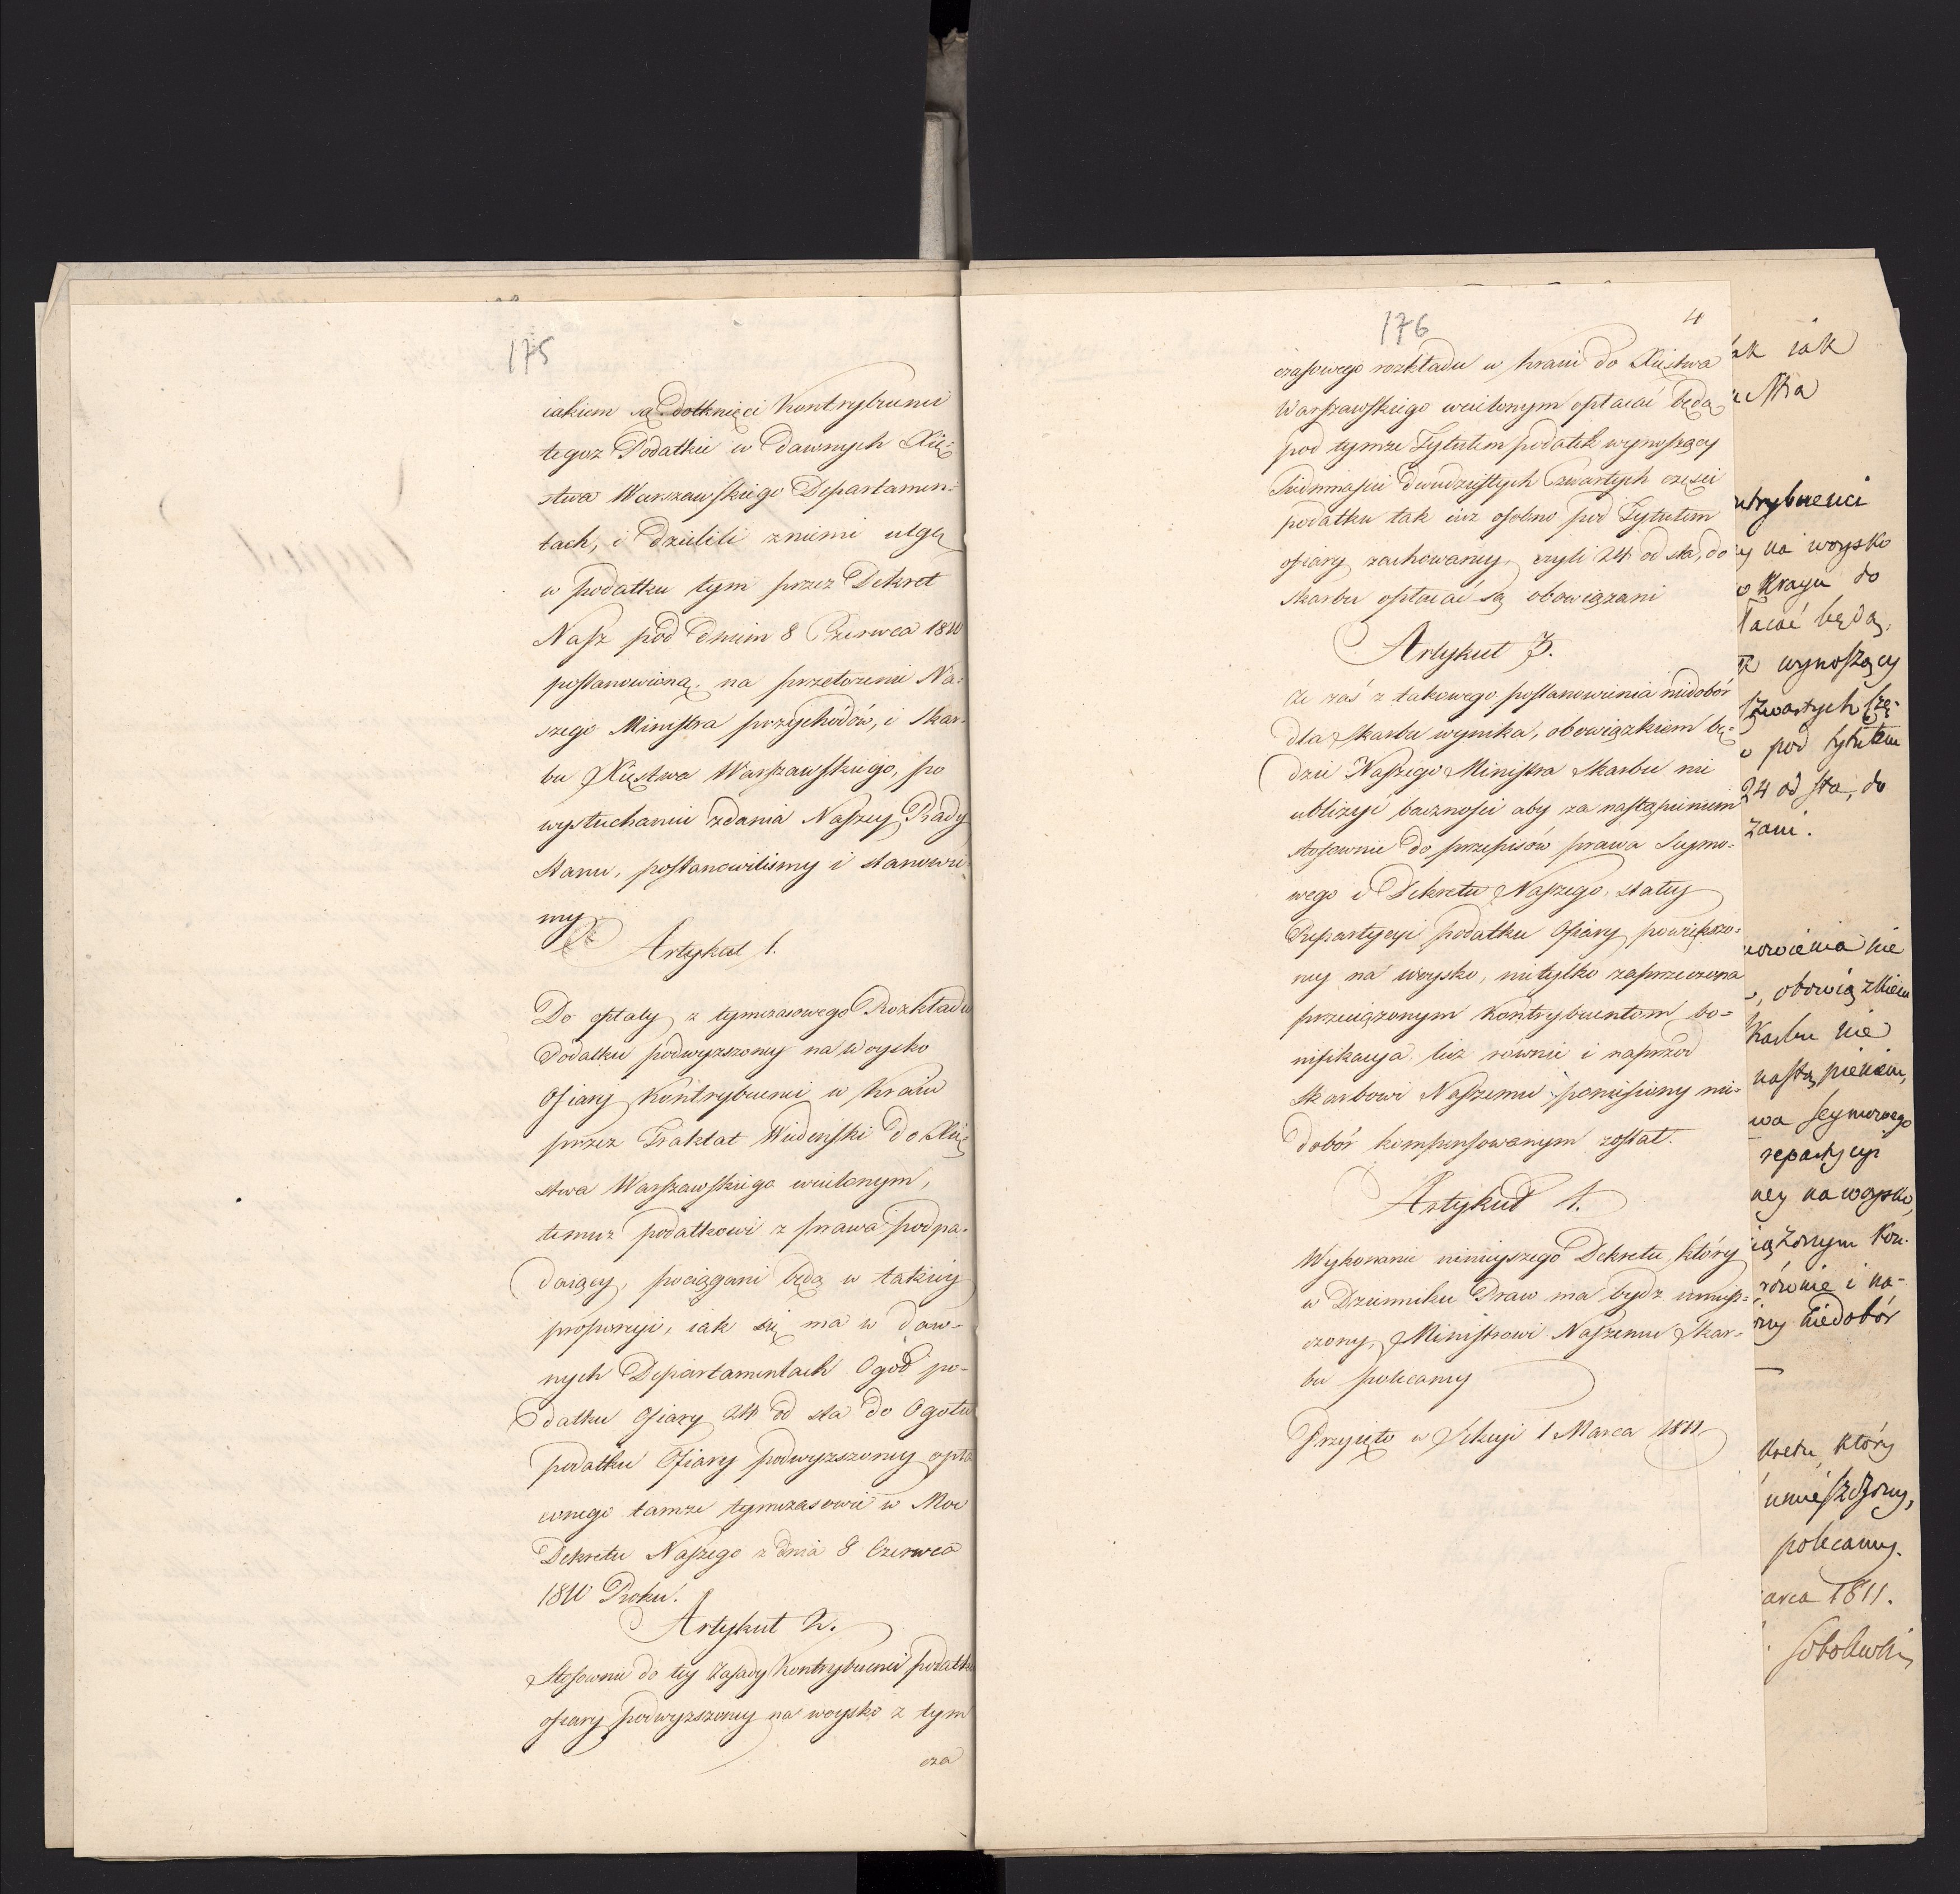 175
iakiem są dotknięci Kontrybuenci
tegoż Podatku w dawnych Xię-
stwa Warszawskiego Departamen-
tach, i dzielili z niemi ulgę
w podatku tym przez Dekret
Nasz pod dniem 8 Czerwca 1810
postanowioną, na przełożenie Na-
szego Ministra przychodów, i Skar-
bu Xięstwa Warszawskiego, po
wysłuchaniu zdania Naszey Rady
Stanu, postanowiliśmy i stanowie-
my
Artykuł 1.
Do opłaty z tymczasowego Rozkładu
Podatku podwyższoney na Woysko
Ofiary Kontrybuenci w Kraiu
przez Traktat Wiedeński do Xię
stwa Warszawskiego wcielonym,
temuż podatkowi z prawa podpa-
daiący, pociągani będą w takiey
proporcyi, iak się ma w daw-
nych Departamentach Ogół po-
datku Ofiary 24 od sta do Ogołu
podatku Ofiary podwyższoney opła
conego tamże tymczasowie w Moc
Dekretu Naszego z dnia 8 Czerwca
1810 Roku.
Artykuł 2.
Stosownie do tey zasady Kontrybuenci podatku
ofiary podwyższoney na woysko z tym
cza
176
4
czasowego rozkładu w kraiu do Xięstwa
Warszawskiego wcielonym opłacać będą
pod tymże Tytułem podatek wynoszący
Siedmnaście dwudziestych Czwartych części
podatku tak iuż osobno pod Tytułem
ofiary zachowaney, czyli 24 od sta, do
Skarbu opłacać są obowiązani
Artykuł 3.
Że zaś z takowego postanowienia niedobór
dla Skarbu wynika, obowiązkiem bę-
dzie Naszego Ministra Skarbu nie
ubliżyć baczności aby za nastąpieniem
stosownie do przepisów prawa Seymo-
wego i Dekretu Naszego, stałey
Repartycyi podatku Ofiary powiększo-
ney na woysko, nietylko zaprzeczona
przeciążonym Kontrybuentom bo-
nifikacya lecz równie i naprzód
Skarbowi Naszemu poniesiony nie-
dobór kompensowanym został.
Artykuł 4.
Wykonanie ninieyszego Dekretu, który
w Dzienniku Praw ma bydź umiesz-
czony, Ministrowi Naszemu Skar-
bu polecamy
Przyięto w Sekcyi 1 Marca 1811
ak iak
ntrybuenci
y na woysko
w Kraju do
łacać będą,
wynoszący
czwartych czę-
pod tytułem
24 od sta, do
zani.
nowienia nie
, obowiązkiem
Skarbu nie
nastąpieniem,
wa seymowego
repartycyi
ney na woysko,
iążonym kon-
równie i na-
ony niedobór
kretu, który
umieszczony,
polecamy.
arca 1811.
Sobolewski